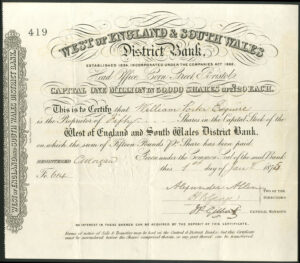 419
WEST OF ENGLAND & SOUTH WALES
District Bank,
ESTABLISHED 1834, INCORPORATED UNDER THE COMPANIES ACT 1862.
Head Office Corn Street Bristol.
CAPITAL ONE MILLION IN 50,000 SHARES OF £20 EACH.
This is to Certify that William Esquire
is the Proprietor of Fifty Shares in the Capital Stock of the
West of England and South Wales District Bank,
on which the sum of Fifteen Pounds P Share has been paid.
REGISTERED Given under the Common Seal of the said Bank
this 1st day of Jany 1875
Fo. 604
Alexander
TWO OF THE DIRECTORS
GENERAL MANAGER
NO INTEREST IN THESE SHARES CAN BE ACQUIRED BY THE DEPOSIT OF THIS CERTIFICATE.
WEST OF ENGLAND AND SOUTH WALES DISTRICT BANK